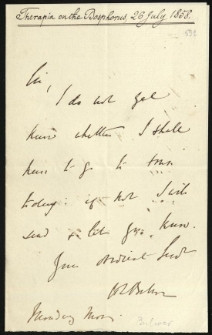 Therapia on the Bosphorus 26 July 1858.
Sir,
I do not yet
know whether I shall
have to go to town
today if not I will
send & let you know.
Your obedient Servt
Monday Morn.